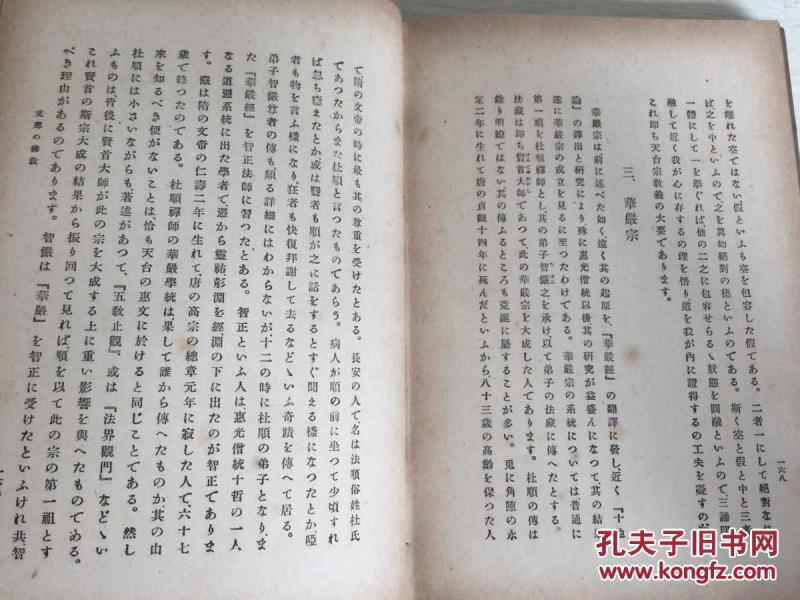 一六八
を離れた空ではない假といふも空を包容した假である。二者一にして絕對な
ば之を中といふので之を眞如絕對の德といふのである。斯く空と假と中と三者
一體にして一を擧ぐれば他の二之に包容せらるゝ狀態を圓融といふので、三諦圓
融して近く我が心に存するの理を悟り道を我が內に證得するの工夫を凝すのが
これ卽ち天台宗敎義の大要であります。
三、華嚴宗
華嚴宗は前に述べた如く、遠く其の起原を、『華嚴經』の飜譯に發し、近く『十地
論』の譯出と硏究により殊に惠光僧統以後其の硏究が益盛んになつて、其の結
遂に華嚴宗の成立を見るに至つたわけである。華嚴宗の系統については普通に
第一祖を杜順禪師とし其の弟子智儼之を承け以て弟子の法藏に傳へたとする。
法藏は卽ち賢首大師であつて、此の華嚴宗を大成した人であります。杜順の傳は
餘り明瞭ではない其の傳ふるところも荒誕に屬することが多い。兎に角陳の永
定二年に生れて唐の貞觀十四年に死んだといふから、八十三歲の高齡を保つた人
て隋の文帝の時に最も其の尊重を受けたとある。長安の人で、名は法順俗姓杜氏
であつたからまた杜順と言つたものであらう。病人が順の前に坐つて少頃すれ
ば忽ち癒えたとか或は聾者も順が之に話をするとすぐ聞える樣になつたとか啞
者も物を言ふ樣になり狂者も快復拜謝して去るなどゝいふ奇蹟を傳へて居る。
弟子智儼尊者の傳も頗る詳細にはわからないが、十二の時に杜順の弟子となりま
た『華嚴經』を智正法師に習つたとある。智正といふ人は惠光僧統十哲の一人
なる道憑系統に出た學者で憑から靈祐彰淵を經、淵の下に出たのが智正でありま
す。儼は隋の文帝の仁壽二年に生れて、唐の高宗の總章元年に寂した人で、六十七
歲で終つたのである。杜順禪師の華嚴學統は果して誰から傳へたものか其の由
來を知るべき便がないことは、恰も天台の惠文に於けると同じことである。然し
杜順には小さいながらも著述があつて、『五敎止觀』、或は『法界觀門』などゝい
ふものは、皆後に賢首大師が此の宗を大成する上に重い影響を與へたものである。
これ賢首の斯宗大成の結果から振り回つて見れば順を以て此の宗の第一祖とす
べき理由があるのであります。智儼は『華嚴』を智正に受けたといふけれ共、智
支那の佛敎
孔夫子旧书网
KONGFZ.COM